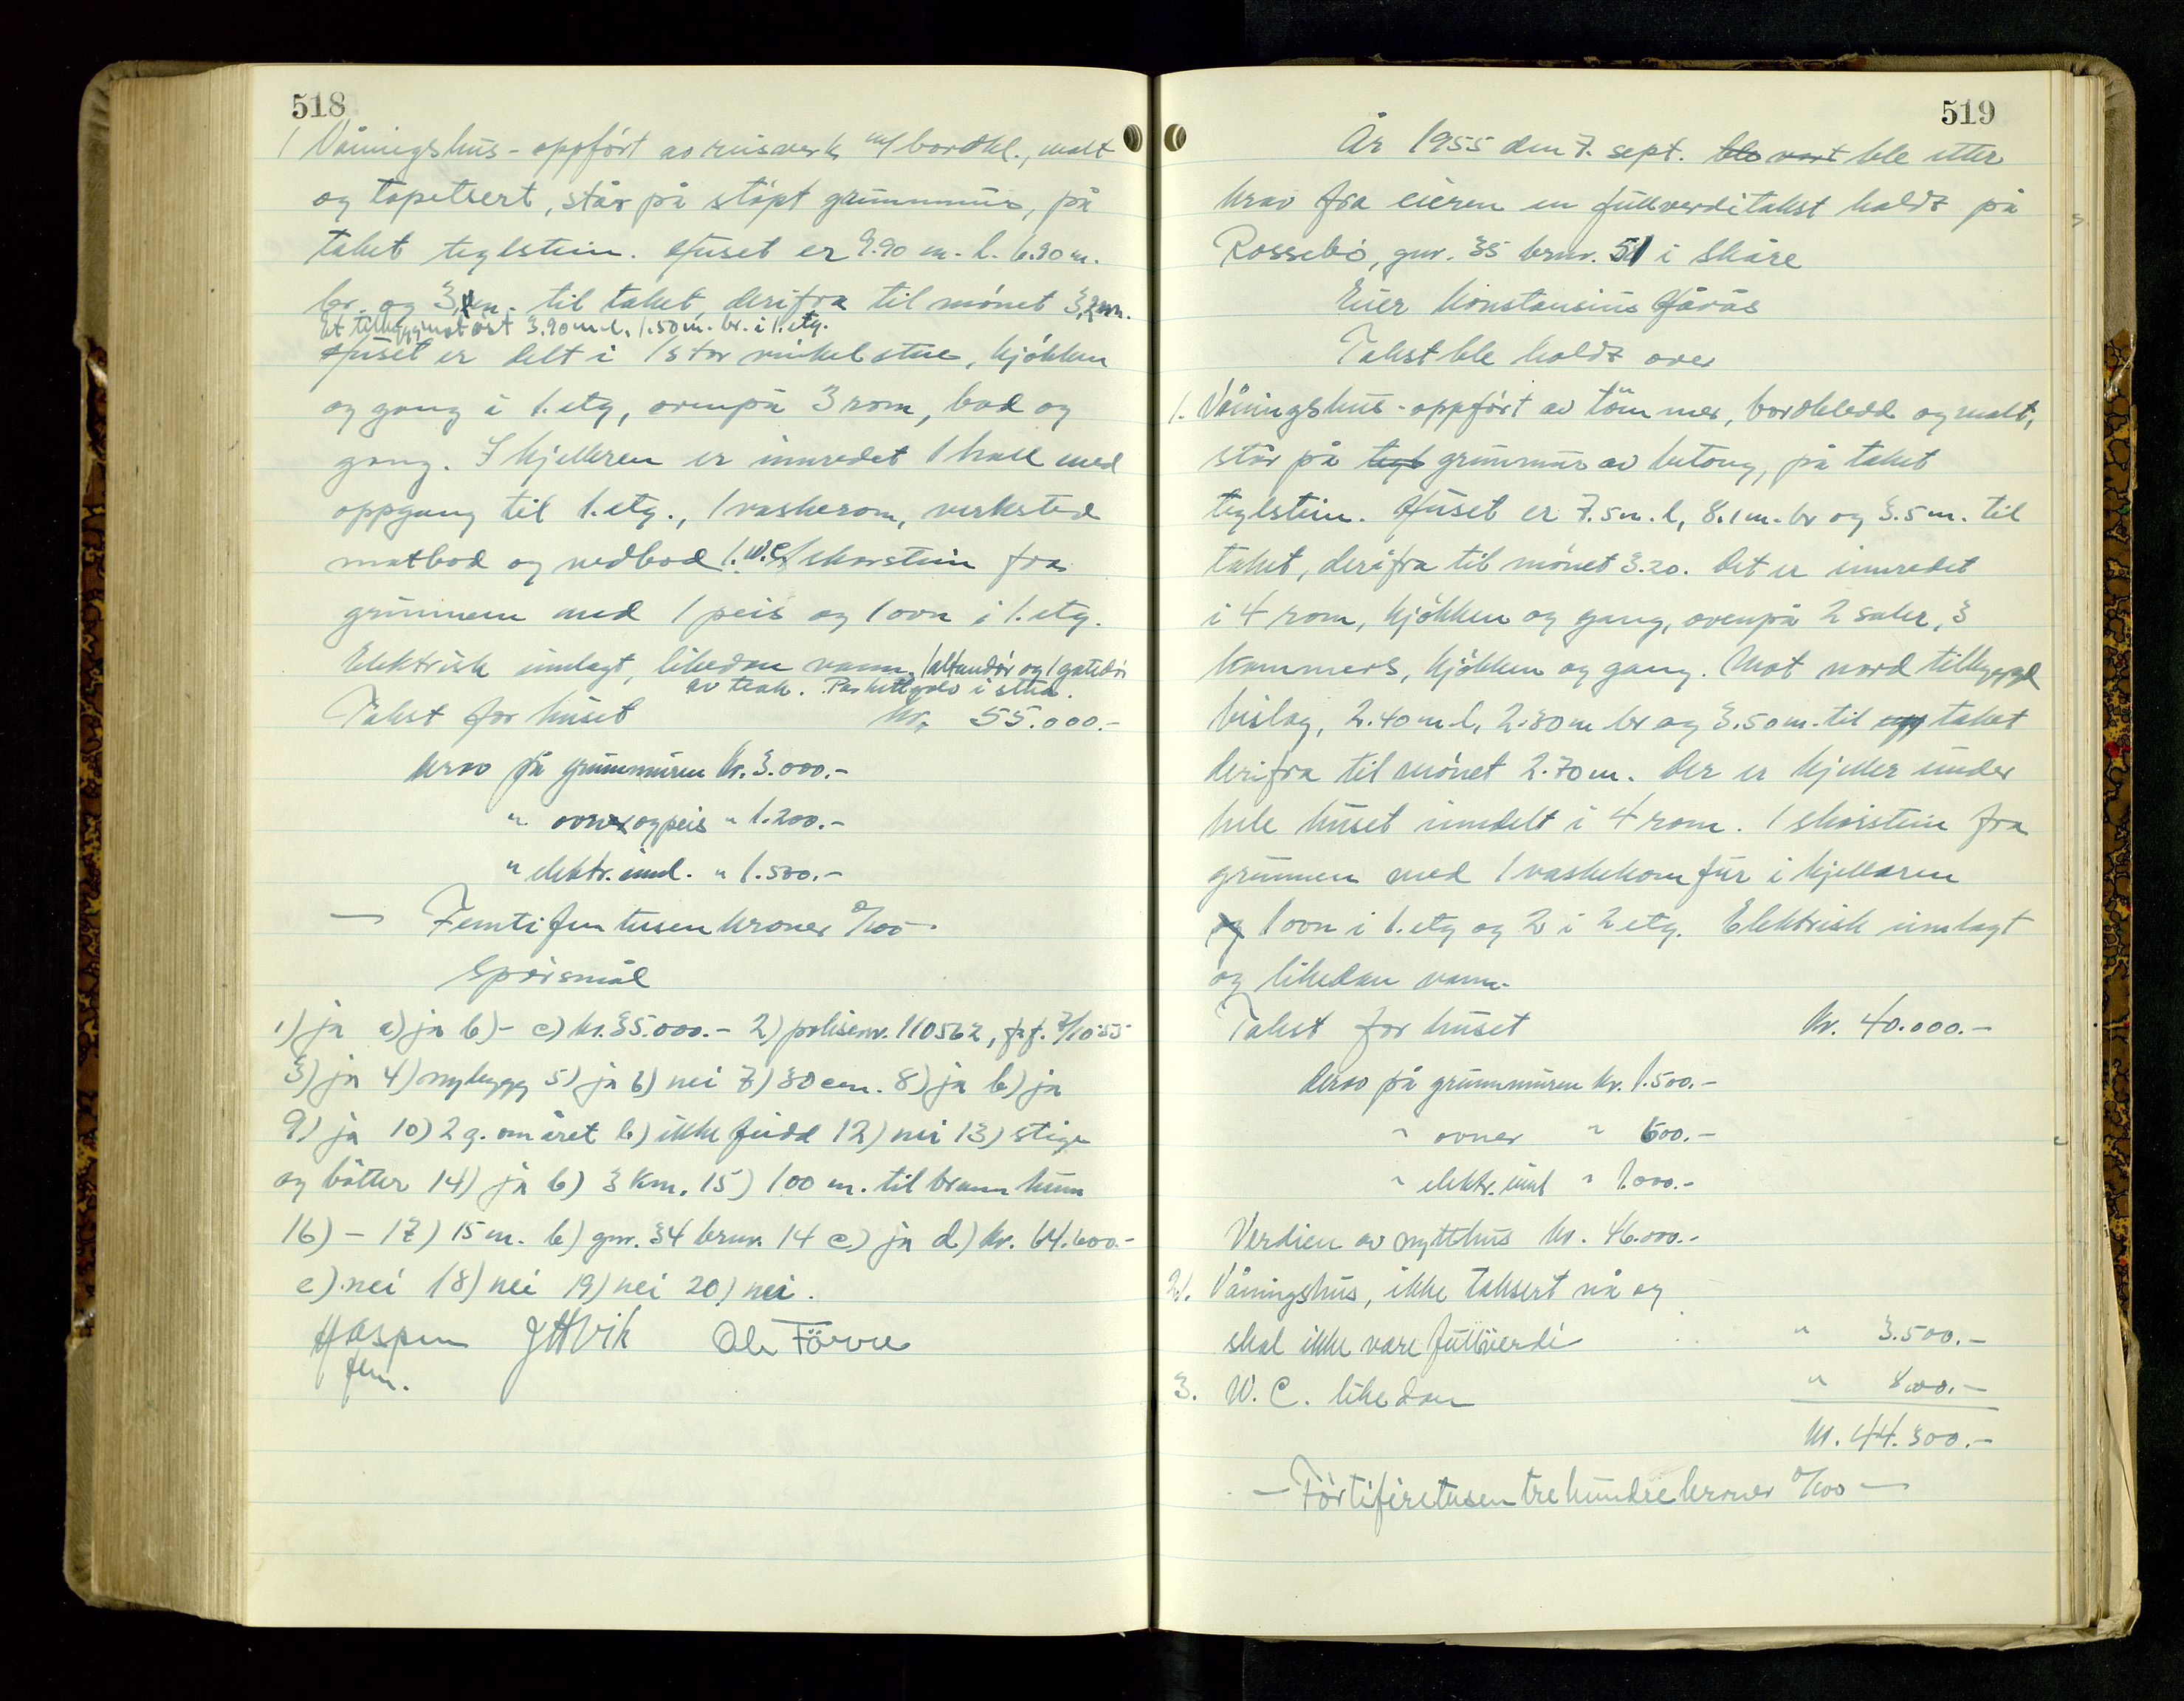 518
1 Våningshus - oppført av reisverk m/ bordkl., malt
og tapetsert, står på støpt grunnmur, på
taket teglstein. Huset er 9.90 m. l. 6.90 m.
br. og 3, m. til taket, derifra til mønet 3,2 m.
Et tilbygg mot øst 3.90 m. l. 1.50 m. br. i 1. etg.
Huset er delt i 1 stor vinkelstue, kjøkken
og gang i 1. etg, ovenpå 3 rom, bad og
gang. I kjelleren er innredet 1 hall med
oppgang til 1. etg., 1 vaskerom, verksted
matbod og vedbod 1. W.C. 1 skorstein fra
grunnen med 1 peis og 1 ovn i 1. etg.
Elektrisk innlagt, likedan vann, 1 altandør og 1 gatedør
av teak. Parkettgolv i stua.
Takst for huset kr. 55.000.-
herav på grunnmuren kr. 3.000.-
" ovner og peis " 1.200.-
" elektr. innl. " 1.500.-
— Femtifem tusen kroner 0/100 -
Spørsmål
1) ja a) ja b) - c) kr. 35.000.- 2) polisenr. 110562, f.f. 7/10 55
3) ja 4) nybygg 5) ja 6) nei 7) 30 cm. 8) ja b) ja
9) ja 10) 2 g. om året b) ikke feidd 12) nei 13) stige
og bøtter 14) ja b) 3 km. 15) 100 m. til brannkum
16) - 17) 15 m. b) gnr. 34 brnr. 14 c) ja d) kr. 64.600.-
e) nei 18) nei 19) nei 20) nei.
H Aspen J H Vik Ole Førre
fm.
519
År 1955 den 7. sept. ble vart ble etter
krav fra eieren en fullverditakst holdt på
Rossebø, gnr. 35 brnr. 51 i Skåre
Eier Konstansius Håvås
Takst ble holdt over
1. Våningshus - oppført av tømmer, bordkledd og malt,
står på tegl grunnmur av betong, på taket
teglstein. Huset er 7.5 m. l, 8.1 m. br og 3.5 m. til
taket, derifra til mønet 3.20. Det er innredet
i 4 rom, kjøkken og gang, ovenpå 2 saler, 3
kammers, kjøkken og gang. Mot nord tilbyggd
bislag, 2.40 m. l, 2.30 m br og 3.50 m. til taket
derifra til mønet 2.70 m. Der er kjeller under
hele huset inndelt i 4 rom. 1 skorstein fra
grunnen med 1 vaskekomfur i kjelleren
og 1 ovn i 1. etg og 2 i 2 etg. Elektrisk innlagt
og likedan vann.
Takst for huset kr. 40.000.-
herav på grunnmuren kr. 1.500.-
" ovner " 600.-
" elektr. innl " 1.000.-
Verdien av nytt hus kr. 46.000.-
2). Våningshus, ikke taksert nå og
skal ikke være fullverdi " 3.500.-
3. W.C. likedan " 800.-
kr. 44.300.-
— Førtifiretusentrehundrekroner 0/100 —